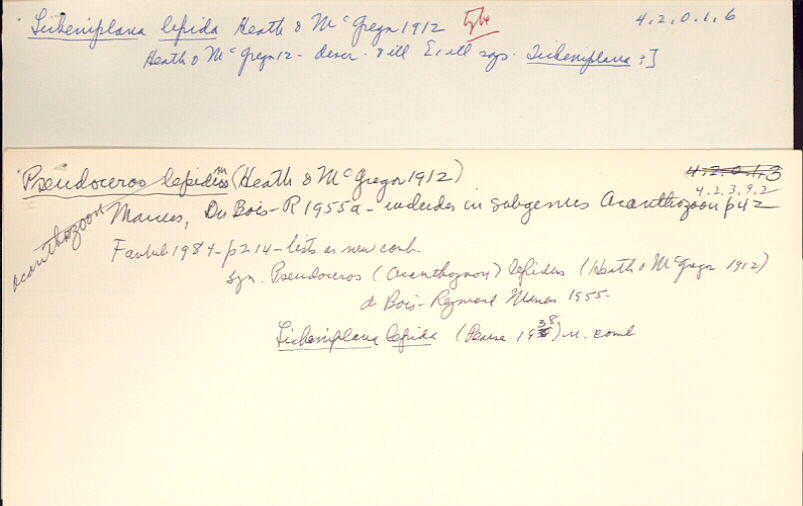 Licheniplana lepida Heath & McGregor 1912 Type 4.2.0.1.6
Heath & McGregor 12 - descr. & ill E, ill says Licheniplana :]
Pseudoceros lepidum (Heath & McGregor 1912) 4.2.0.1.3
4.2.3.9.2
acanthozoon
Marcus, Du Bois-R 1955a - includes in subgenus Acanthozoon p42
Faubel 1984 - p214 - lists as new comb.
syn. Pseudoceros (Acanthozoon) lepidus (Heath & McGregor 1912)
du Bois-Reymond Marcus 1955.
Licheniplana lepida (Pearse 1938) n. comb